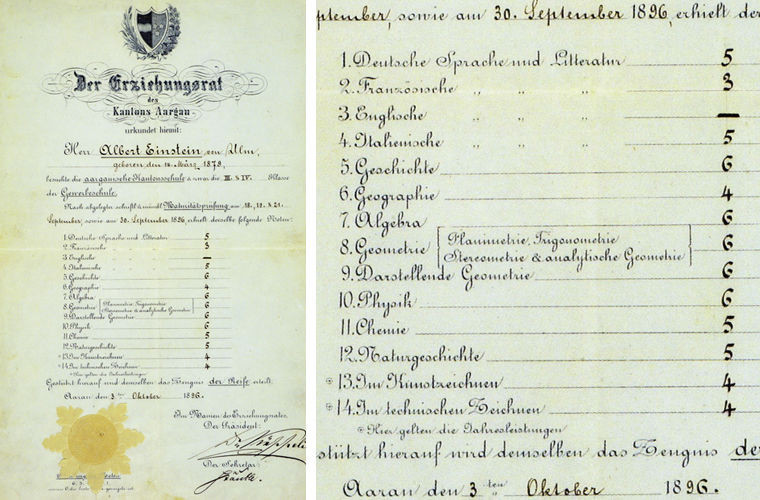 Der Erziehungsrat
des
Kantons Aargau
urkundet hiemit:
Herr Albert Einstein von Ulm,
geboren den 14. März 1879,
besuchte die aargauische Kantonsschule & zwar die III. & IV. Klasse
der Gewerbeschule.
Nach abgelegter schriftl. & mündl. Maturitätsprüfung am 18., 19. & 21.
September, sowie am 30. September 1896, erhielt derselbe folgende Noten:
1. Deutsche Sprache und Litteratur 5
2. Französische „ „ „ 3
3. Englische „ „ „ —
4. Italienische „ „ „ 5
5. Geschichte 6
6. Geographie 4
7. Algebra 6
8. Geometrie Planimetrie, Trigonometrie 6
Stereometrie & analytische Geometrie
9. Darstellende Geometrie 6
10. Physik 6
11. Chemie 5
12. Naturgeschichte 5
* 13. Im Kunstzeichnen 4
* 14. Im technischen Zeichnen 4
* Hier gelten die Jahresleistungen
Gestützt hierauf wird demselben das Zeugnis der Reife erteilt.
Aarau den 3ten Oktober 1896.
Im Namen des Erziehungsrates.
Der Präsident:
Der Sekretär:
ptember, sowie am 30. September 1896, erhielt der
1. Deutsche Sprache und Litteratur 5
2. Französische „ „ „ 3
3. Englische „ „ „ —
4. Italienische „ „ „ 5
5. Geschichte 6
6. Geographie 4
7. Algebra 6
8. Geometrie Planimetrie, Trigonometrie 6
Stereometrie & analytische Geometrie
9. Darstellende Geometrie 6
10. Physik 6
11. Chemie 5
12. Naturgeschichte 5
* 13. Im Kunstzeichnen 4
* 14. Im technischen Zeichnen 4
* Hier gelten die Jahresleistungen
stützt hierauf wird demselben das Zeugnis de
Aarau den 3ten Oktober 1896.